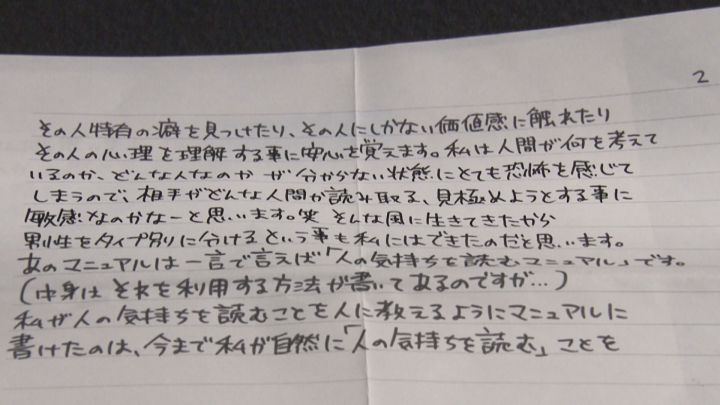 2
その人特有の癖を見つけたり、その人にしかない価値感に触れたり
その人の心理を理解する事に安心を覚えます。私は人間が何を考えて
いるのか、どんな人なのか が分からない状態にとても恐怖を感じて
しまうので、相手がどんな人間か読み取る、見極めようとする事に
敏感なのかなーと思います。笑 そんな風に生きてきたから
男性をタイプ別りに分けるという事も私にはできたのだと思います。
あのマニュアルは一言で言えば「人の気持ちを読むマニュアル」です。
(中身は それを利用する方法が書いてあるのですが…)
私が人の気持ちを読むことを人に教えるようにマニュアルに
書けたのは、今まで私が自然に「人の気持ちを読む」ことを